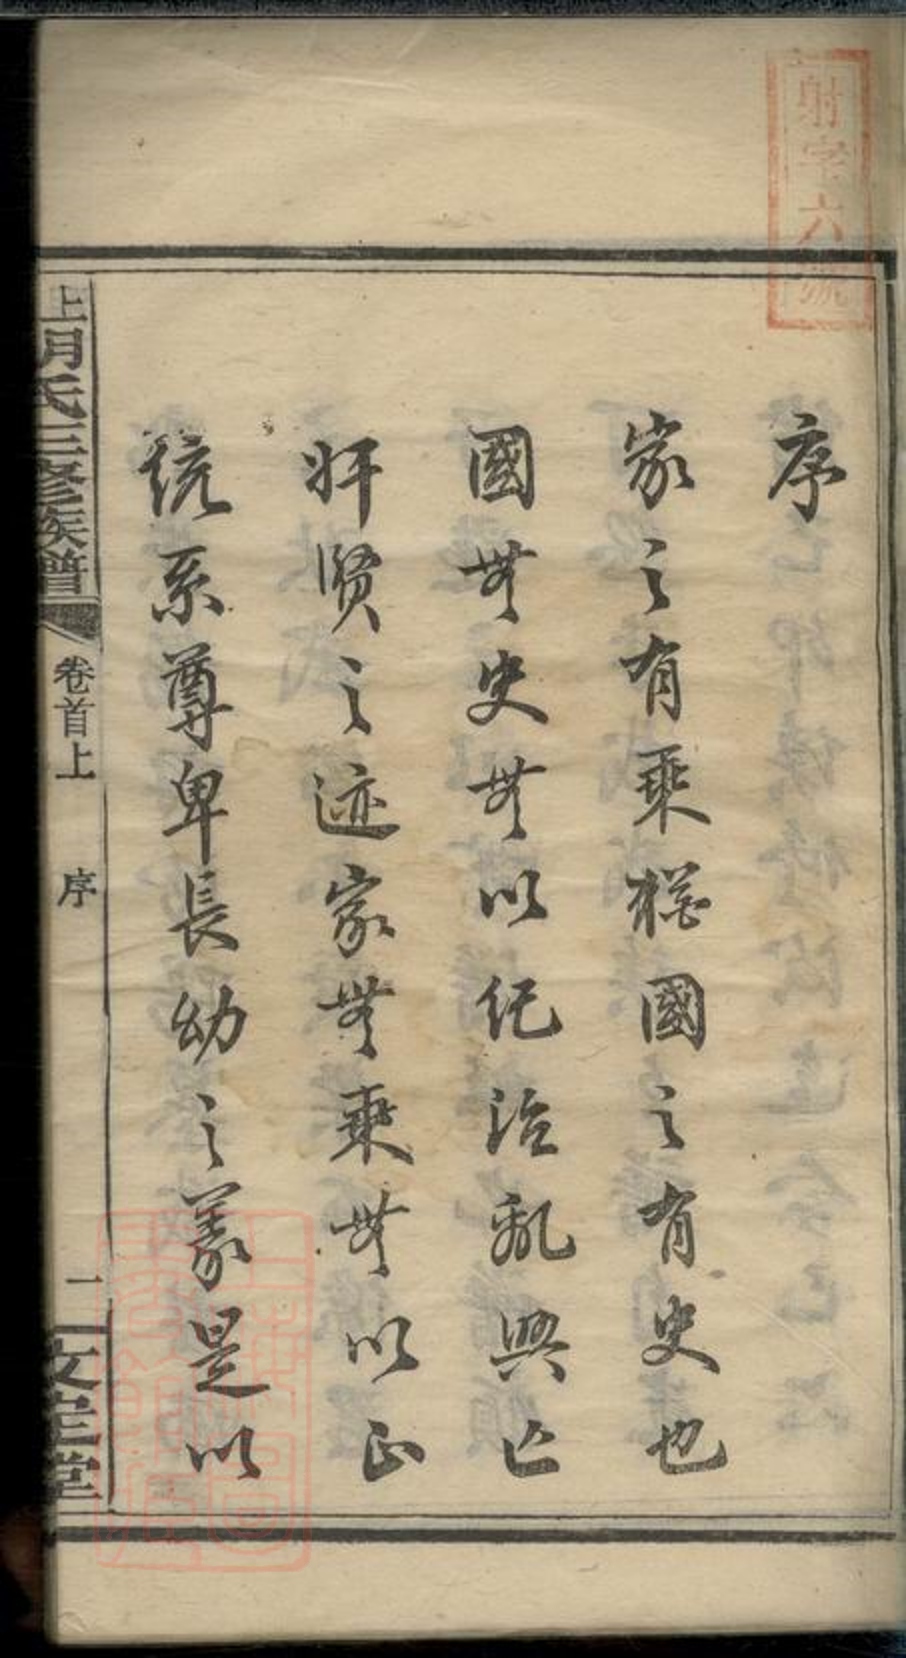 射字六號
序
家之有乘猶國之有史也
國無史無以紀治亂興亡
奸賢之迹家無乘無以正
統系尊卑長幼之義是以
上胡氏三修族譜
卷首上
序
一
文定堂